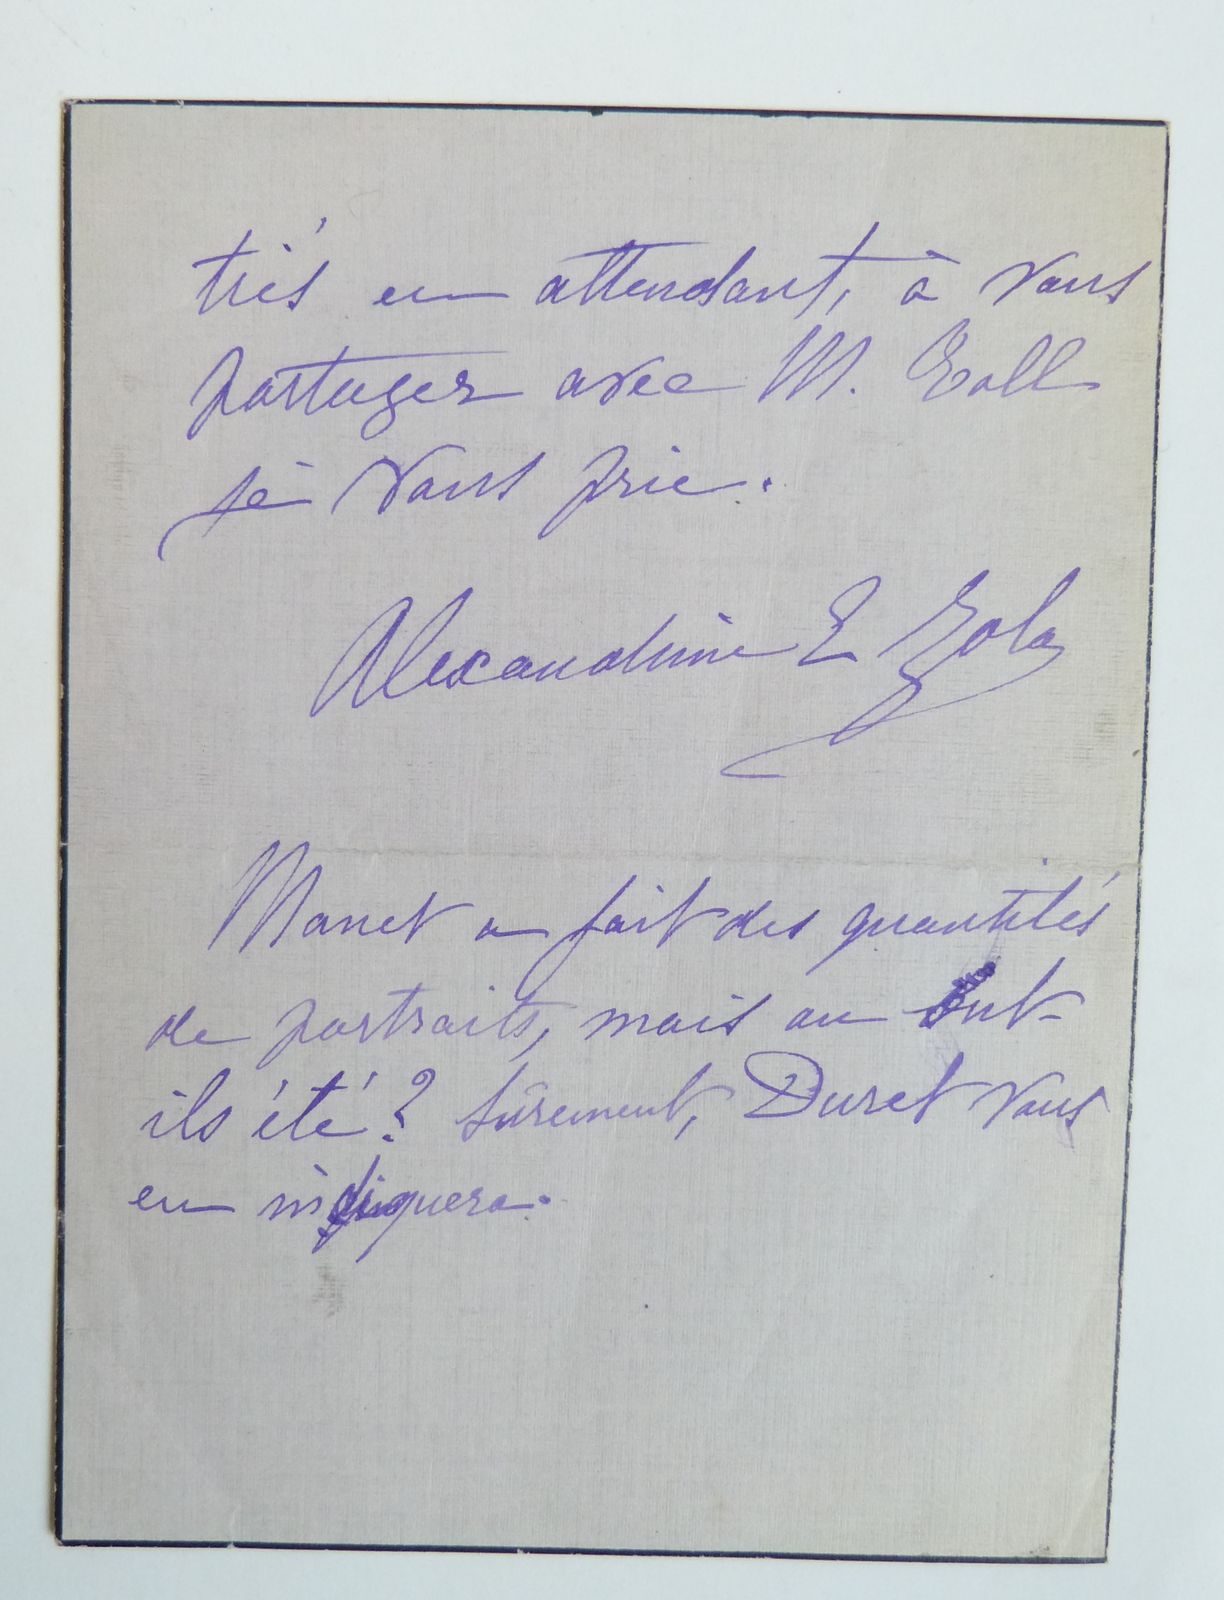 triés en attendant, à vous
partager avec M. Roll
je vous prie.
Alexandrine E Zola
Manet a fait des quantités
de portraits, mais où ont-
ils été ? Sûrement, Duret vous
en indiquera.